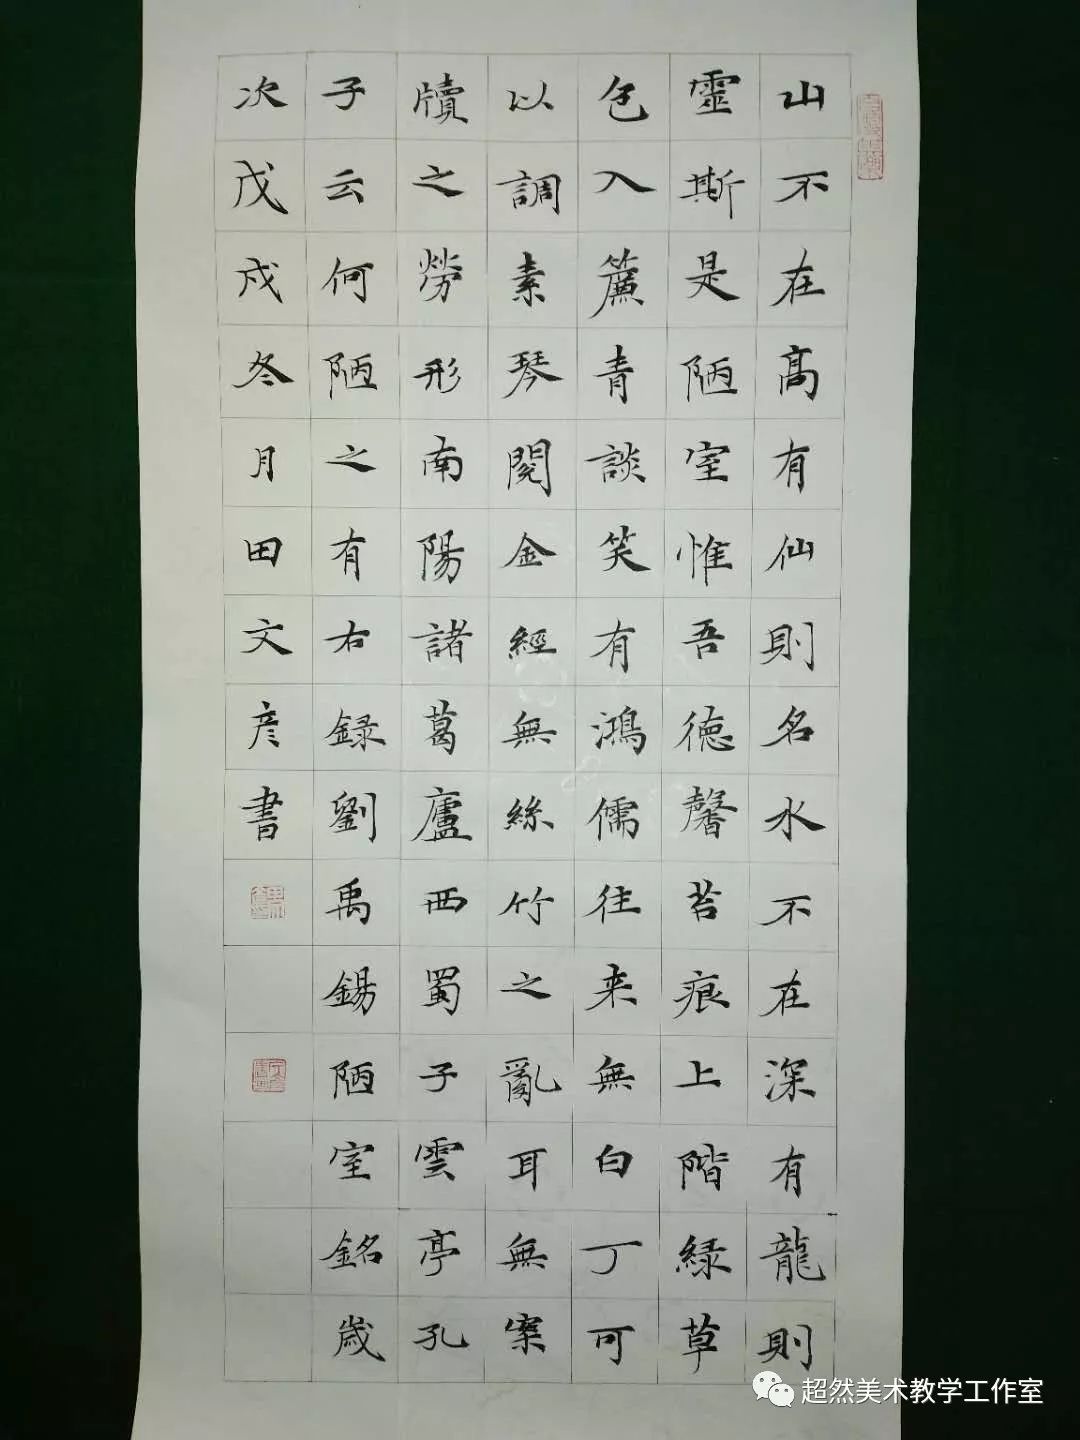 山不在高有仙則名水不在深有龍則
靈斯是陋室惟吾德馨苔痕上階緑草
色入簾青談笑有鴻儒往来無白丁可
以調素琴閱金經無絲竹之亂耳無案
牘之勞形南陽諸葛廬西蜀子雲亭孔
子云何陋之有右録劉禹錫陋室銘歲
次戊戌冬月田文彦書
超然美术教学工作室